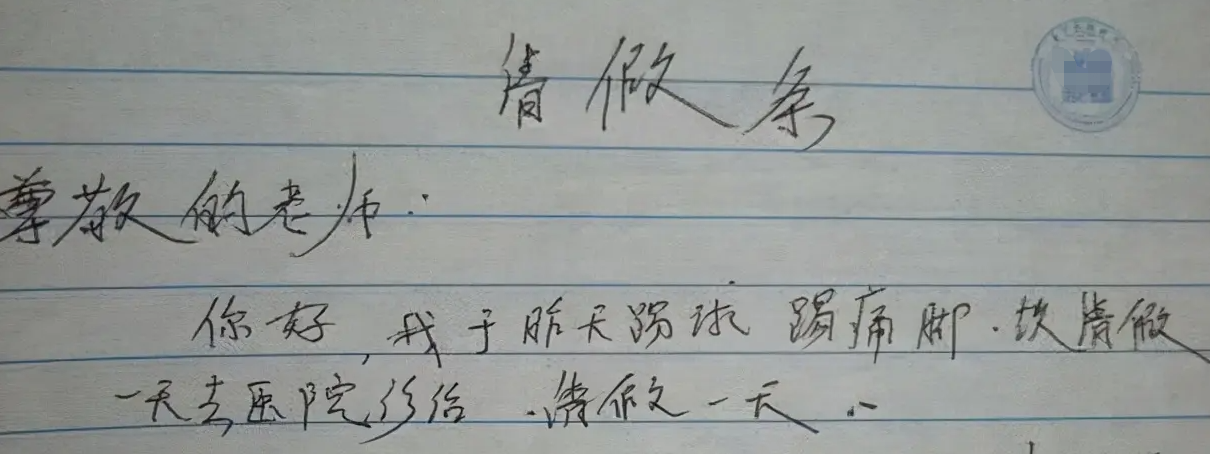 请假条
尊敬的老师:
你好,我于昨天踢球踢痛脚.故请假
一天去医院诊治.请假一天..